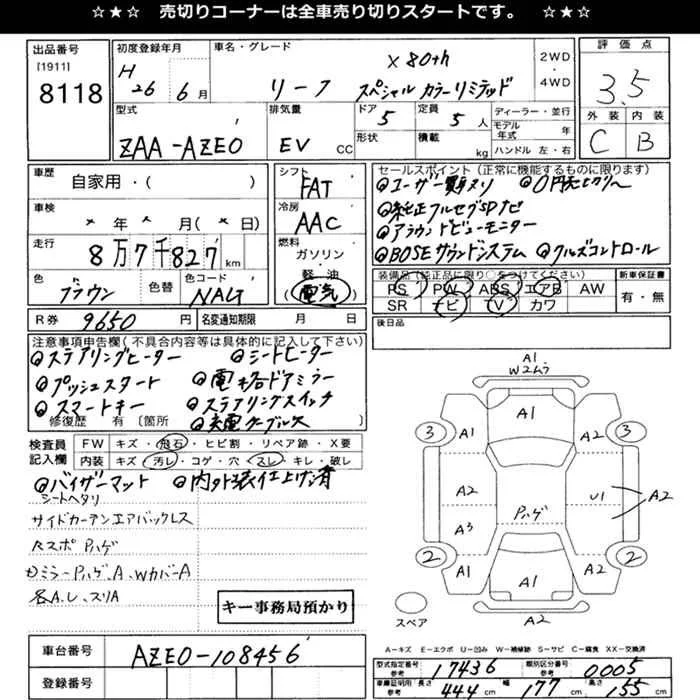 ☆★☆ 売切りコーナーは全車売り切りスタートです。 ☆★☆
出品番号
[1911]
8118
初度登録年月
H26 6月
車名・グレード
X 80th
リーフ スペシャルカラーリミテッド
2WD・4WD
評価点
3.5
外装 内装
C B
型式
ZAA-AZE0
排気量
EV CC
ドア 5
形状
定員 5人
積載 kg
ディーラー・並行
モデル年式 年
ハンドル 左・右
車歴
自家用・( )
車検
× 年 × 月(× 日)
走行
8万7千827km
色
ブラウン
色替
色コード
NAG
シフト
FAT
冷房
AAC
燃料
ガソリン
軽油
電気
R券 9650円
名変通知期限 月 日
セールスポイント(正常に機能するものに限ります)
◎ユーザー買取り ◎0円売切り〜
◎純正フルセグSDナビ
◎アラウンドビューモニター
◎BOSEサウンドシステム ◎クルーズコントロール
装備品(純正品に限り○をつけてください) 新車保証書
PS PW ABS エアB AW
SR ナビ TV カワ
有・無
後日品
注意事項申告欄(不具合内容等は具体的に記入して下さい)
◎ステアリングヒーター ◎シートヒーター
◎プッシュスタート ◎電格ドアミラー
◎スマートキー ◎ステアリングスイッチ
修復歴 有〔箇所 〕
◎充電ケーブルス
検査員記入欄
FW キズ・飛石・ヒビ割・リペア跡・X要
内装 キズ・汚レ・コゲ・穴・スレ・キレ・破レ
◎バイザーマット ◎内外装仕上げ済
シートヘタリ
サイドカーテンエアバックレス
Rスポ Pハゲ
ドミラーPハゲ、A、WカバーA
各A、レ、スリA
キー事務局預かり
A1
W2ムラ
A1
3 A1 A2 3
A2 U1 A2
Pハゲ
A3
2 A1 A2 2
A1
A2
スペア
A-キズ E-エクボ U-凹み W-補修跡 S-サビ C-腐食 XX-交換済
車台番号
AZE0-108456
登録番号
型式指定番号 参考 17436
類別区分番号 参考 0005
車庫証明用 参考 長さ 444cm 幅 177cm 高さ 155cm